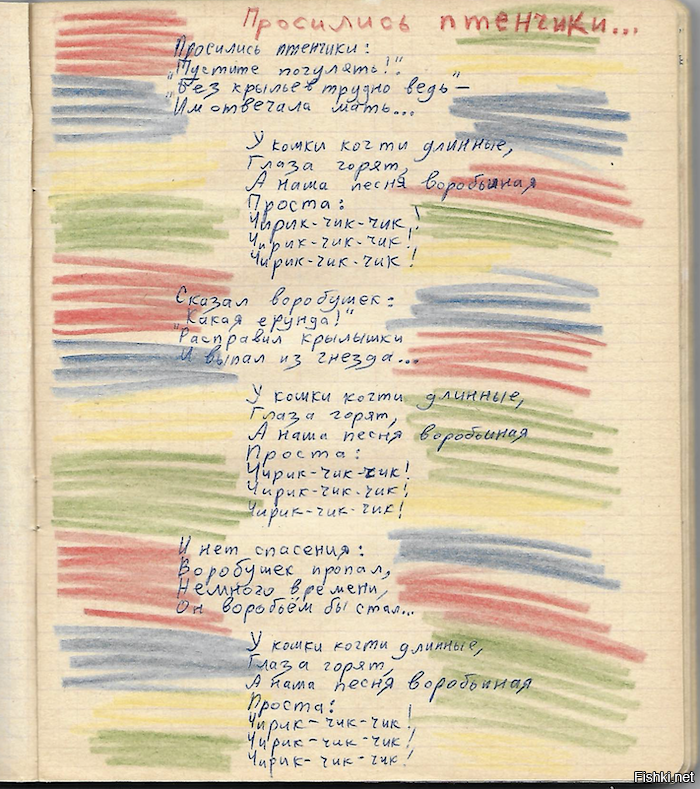 Просились птенчики...
Просились птенчики:
"Пустите погулять!"
"Без крыльев трудно ведь" –
Им отвечала мать...
У кошки когти длинные,
Глаза горят,
А наша песня воробьиная
Проста:
Чирик-чик-чик!
Чирик-чик-чик!
Чирик-чик-чик!
Сказал воробушек:
"Какая ерунда!"
Расправил крылышки
И выпал из гнезда...
У кошки когти длинные,
Глаза горят,
А наша песня воробьиная
Проста:
Чирик-чик-чик!
Чирик-чик-чик!
Чирик-чик-чик!
И нет спасения:
Воробушек пропал,
Немного времени,
Он воробьём бы стал...
У кошки когти длинные,
Глаза горят,
А наша песня воробьиная
Проста:
Чирик-чик-чик!
Чирик-чик-чик!
Чирик-чик-чик!
Fishki.net